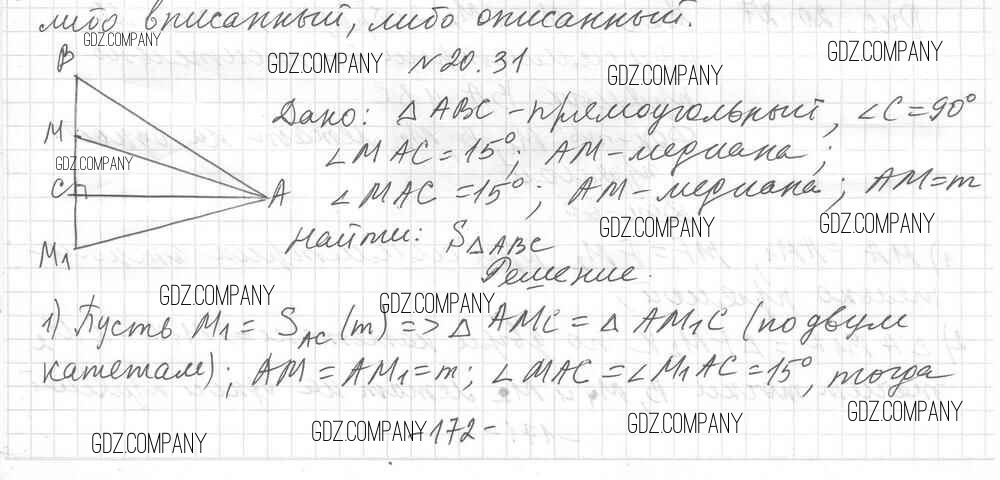 либо вписанный, либо описанный.
GDZ.COMPANY
GDZ.COMPANY
№20.31
GDZ.COMPANY
GDZ.COMPANY
B
Дано: △ABC - прямоугольный, ∠C=90°
M
∠MAC=15°; AM-медиана;
GDZ.COMPANY
C
A
∠MAC=15°; AM-медиана; AM=m
GDZ.COMPANY
GDZ.COMPANY
Найти: S△ABC
M₁
Решение.
GDZ.COMPANY
GDZ.COMPANY
1) Пусть M₁ = S_AC (m) => △AMC = △AM₁C (по двум
катетам); AM = AM₁ = m; ∠MAC = ∠M₁AC = 15°, тогда
GDZ.COMPANY
GDZ.COMPANY
-172-
GDZ.COMPANY
GDZ.COMPANY